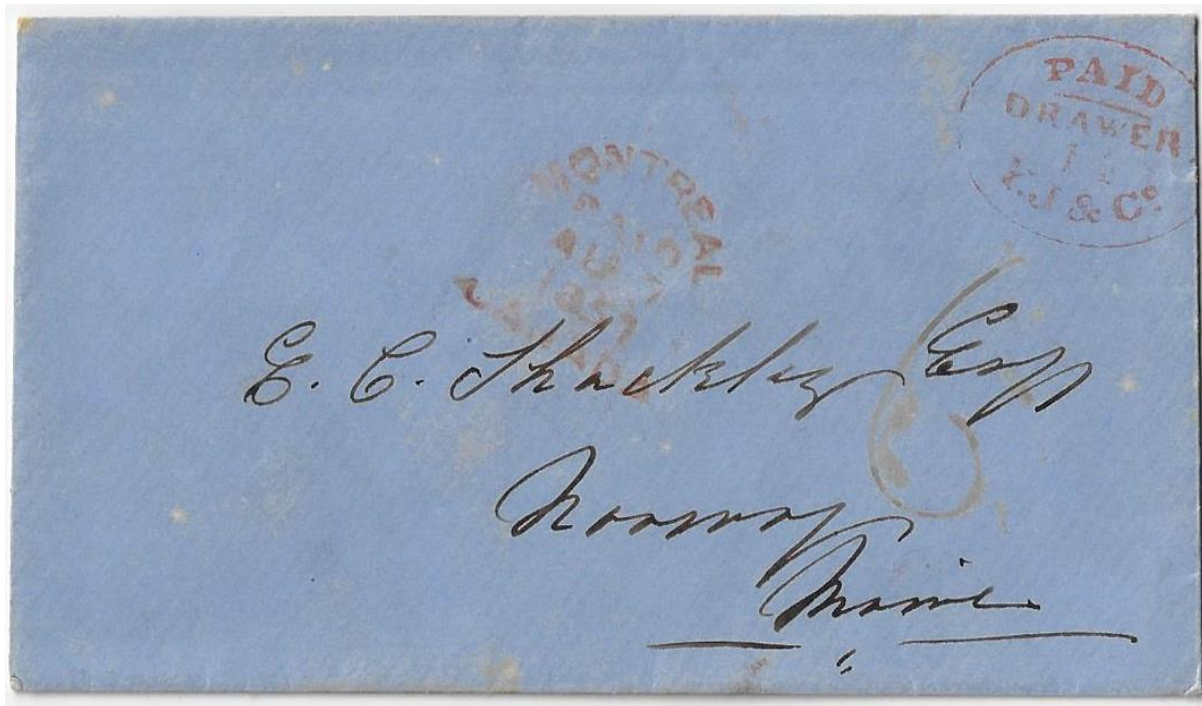 PAID
DRAWER
& Co.
MONTREAL
AU
CANADA
6
E. C. Shackley Esq
Norway
Maine